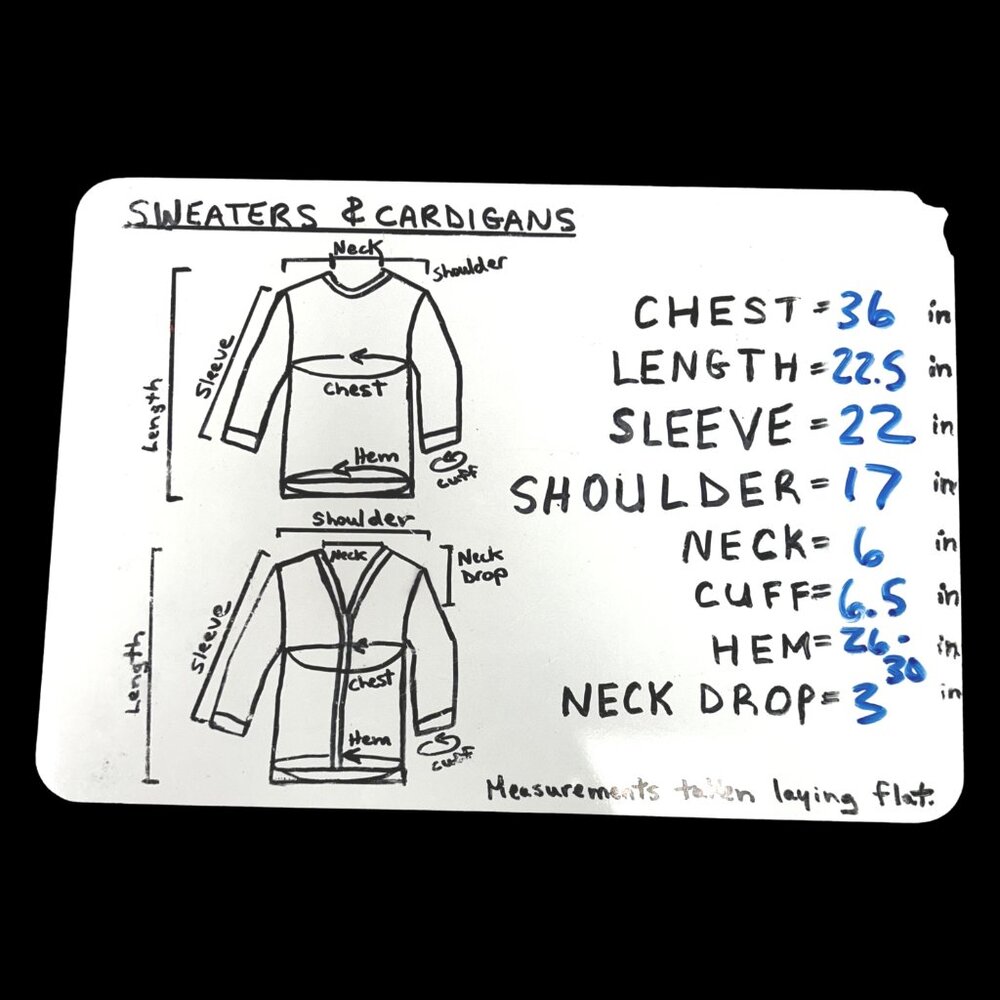 SWEATERS & CARDIGANS
Neck
Shoulder
Sleeve
Length
Chest
Hem
cuff
Shoulder
Neck
Neck
Drop
Sleeve
Length
Chest
Hem
cuff
CHEST = 36 in
LENGTH = 22.5 in
SLEEVE = 22 in
SHOULDER = 17 in
NECK = 6 in
CUFF = 6.5 in
HEM = 26-30 in
NECK DROP = 3 in
Measurements taken laying flat.